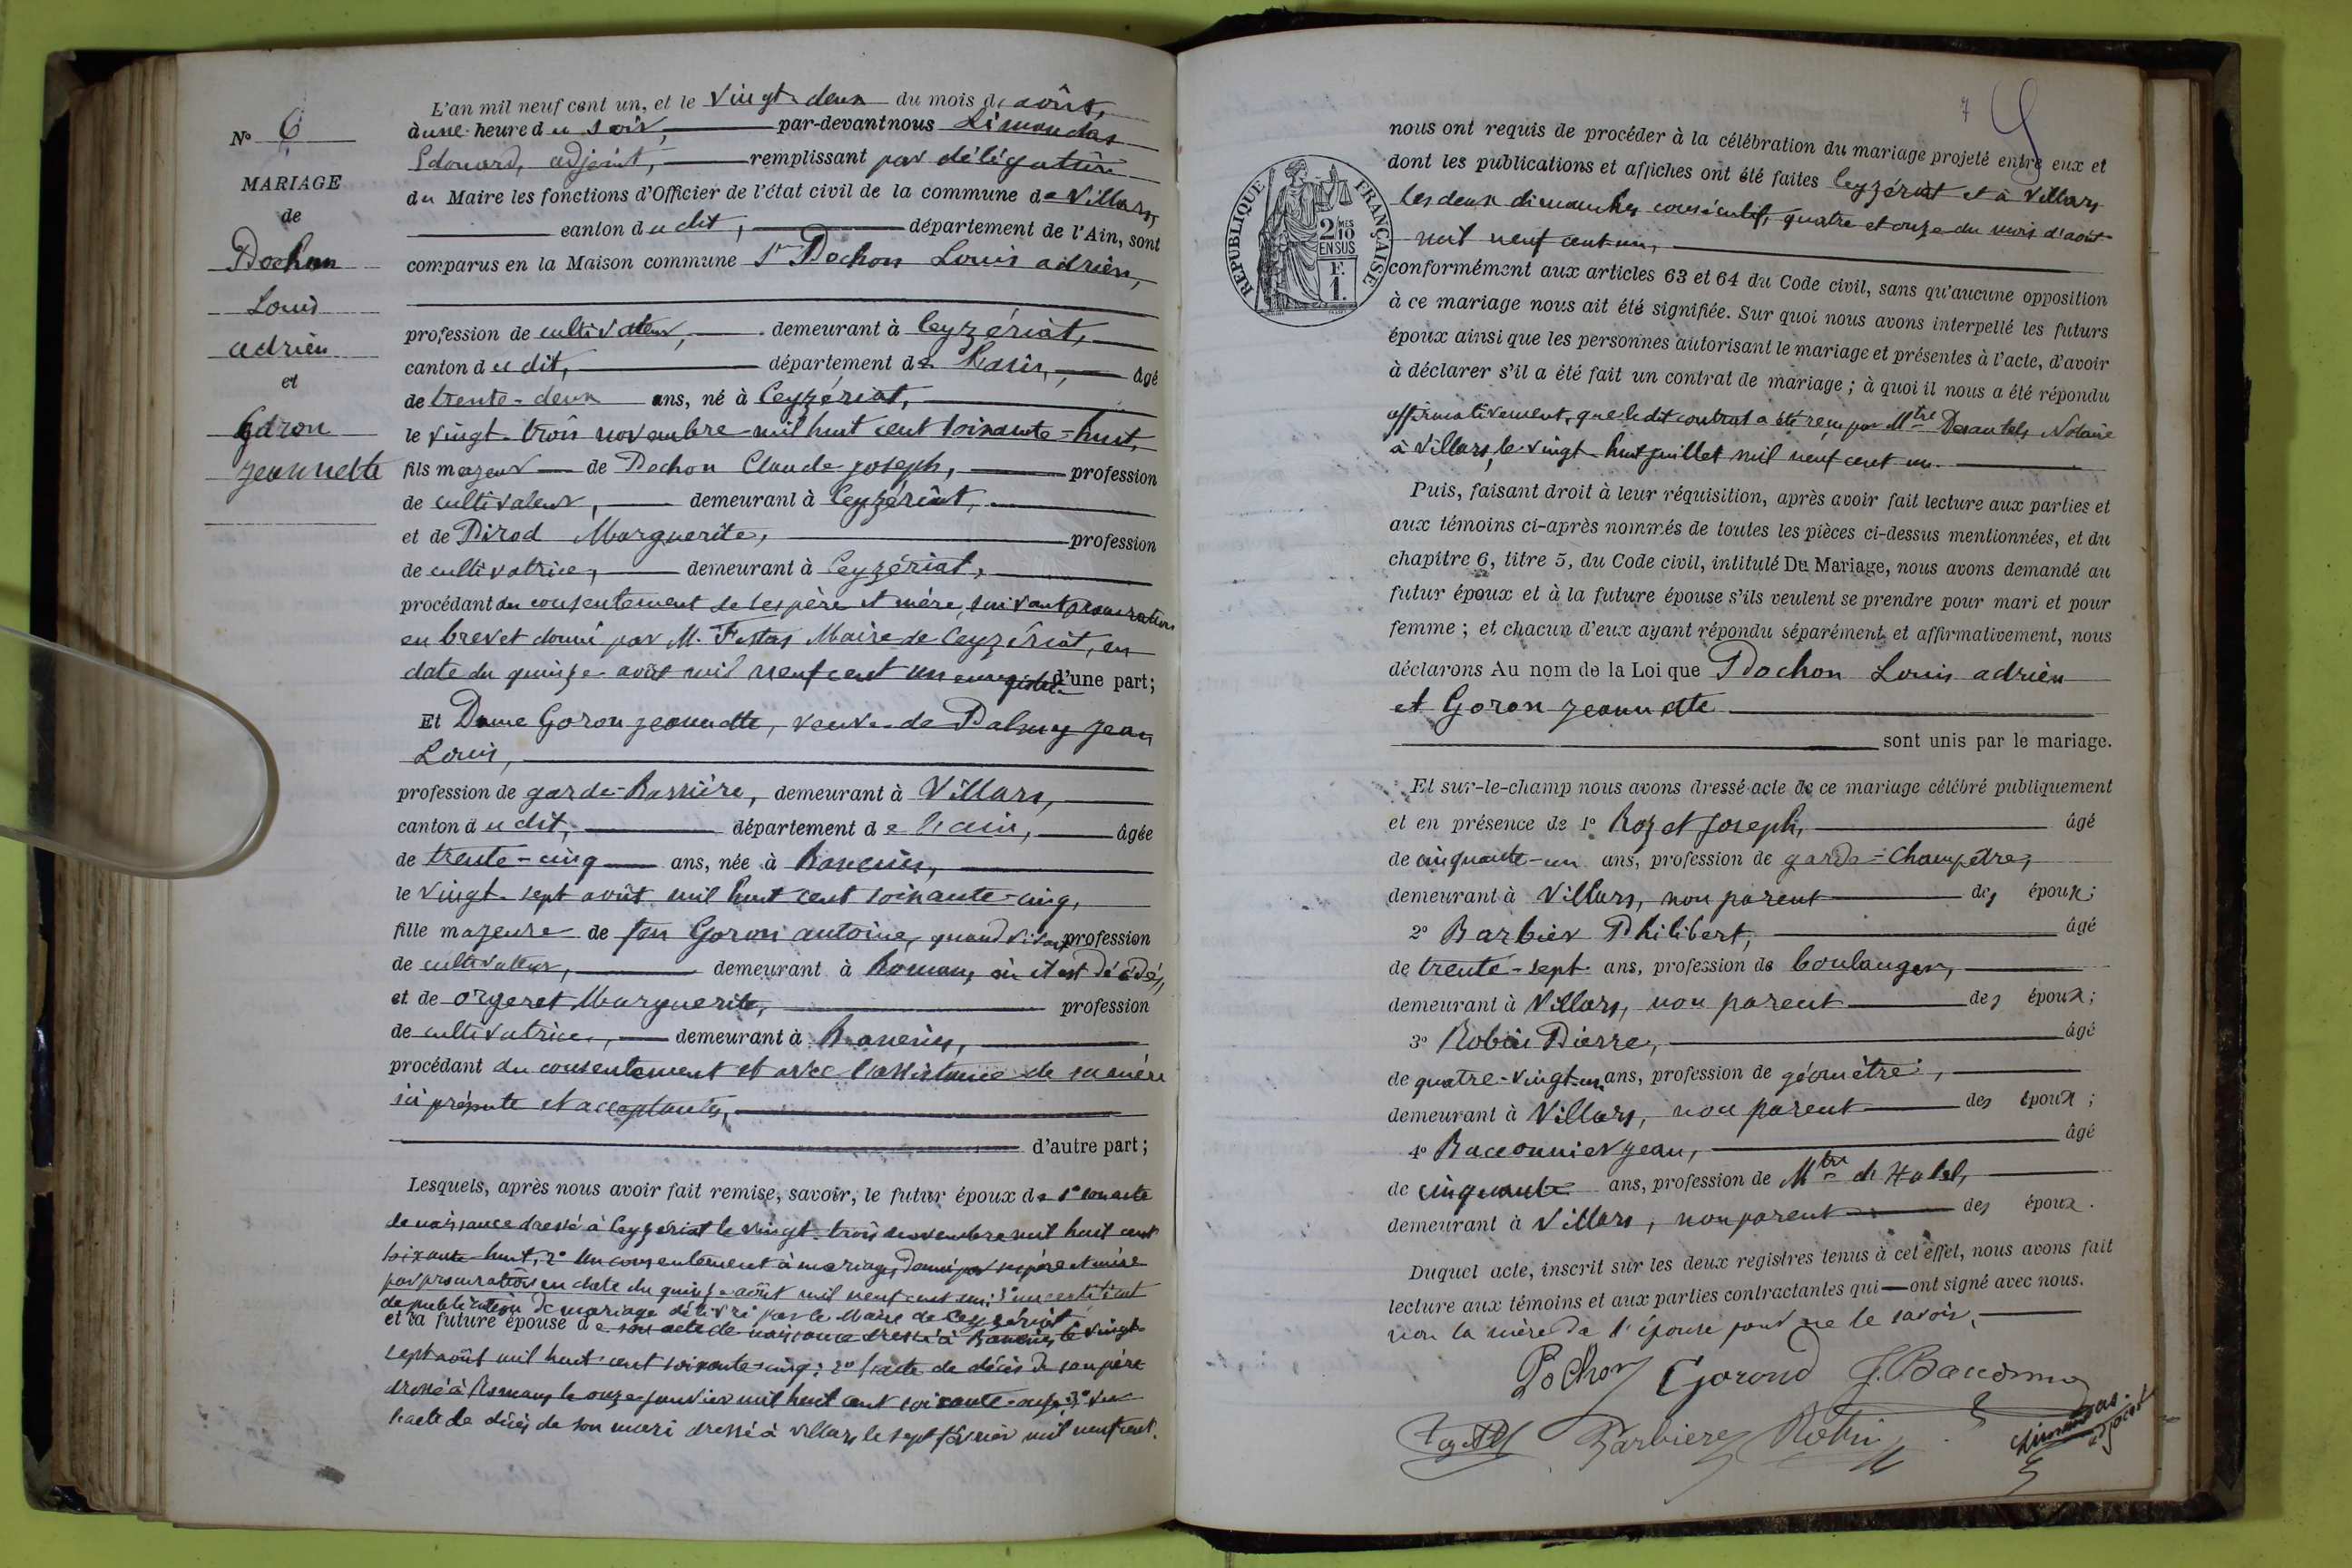 N° 6
MARIAGE
de
Pochon
Louis
adrien
et
Goron
Jeannette
L'an mil neuf cent un, et le vingt-deux du mois d'août,
à une heure du soir, par-devant nous Limandas
Edouard, adjoint, remplissant par délégation
du Maire les fonctions d'Officier de l'état civil de la commune de Villars,
canton dudit, département de l'Ain, sont
comparus en la Maison commune Sr Pochon Louis adrien,
profession de cultivateur, demeurant à Ceyzériat,
canton dudit, département de l'ain, âgé
de trente-deux ans, né à Ceyzériat,
le vingt-trois novembre mil huit cent soixante-huit,
fils majeur de Pochon Claude joseph, profession
de cultivateur, demeurant à Ceyzériat,
et de Pirod Marguerite, profession
de cultivatrice, demeurant à Ceyzériat,
procédant du consentement de ses père et mère, suivant procuration
en brevet donné par M. Maire de Ceyzériat, en
date du quinze août mil neuf cent un enregistré d'une part;
Et Dame Goron jeannette, veuve de Palmy jean
Louis,
profession de garde-Barrière, demeurant à Villars,
canton dudit, département de l'ain, âgée
de trente-cinq ans, née à Baneins,
le vingt-sept août mil huit cent soixante-cinq,
fille majeure de feu Goron antoine, quand vivait profession
de cultivateur, demeurant à Romans, où il est décédé,
et de orgeret Marguerite, profession
de cultivatrice, demeurant à Baneins,
procédant du consentement et avec l'assistance de sa mère
ici présente et acceptante,
d'autre part;
Lesquels, après nous avoir fait remise, savoir, le futur époux de 1° son acte
de naissance dressé à Ceyzériat le vingt-trois novembre mil huit cent
soixante-huit, 2° un consentement à mariage, donné par ses père et mère
par procuration en date du quinze août mil neuf cent un; 3° un certificat
de publication de mariage délivré par le Maire de Ceyzériat
et la future épouse de son acte de naissance dressé à Baneins, le vingt-
sept août mil huit cent soixante-cinq; 2° l'acte de décès de son père
dressé à Romans le onze janvier mil huit cent soixante-onze; 3° de
l'acte de décès de son mari dressé à Villars le sept février mil neuf cent.
7
nous ont requis de procéder à la célébration du mariage projeté entre eux et
dont les publications et affiches ont été faites Ceyzériat et à Villars
les deux dimanches consécutifs, quatre et onze du mois d'août
mil neuf cent un,
RÉPUBLIQUE FRANÇAISE
2 MES
10
EN SUS
F.
1.
conformément aux articles 63 et 64 du Code civil, sans qu'aucune opposition
à ce mariage nous ait été signifiée. Sur quoi nous avons interpellé les futurs
époux ainsi que les personnes autorisant le mariage et présentes à l'acte, d'avoir
à déclarer s'il a été fait un contrat de mariage; à quoi il nous a été répondu
affirmativement, que ledit contrat a été reçu par Mtre Desautels Notaire
à Villars, le vingt-huit juillet mil neuf cent un.
Puis, faisant droit à leur réquisition, après avoir fait lecture aux parties et
aux témoins ci-après nommés de toutes les pièces ci-dessus mentionnées, et du
chapitre 6, titre 5, du Code civil, intitulé Du Mariage, nous avons demandé au
futur époux et à la future épouse s'ils veulent se prendre pour mari et pour
femme; et chacun d'eux ayant répondu séparément et affirmativement, nous
déclarons Au nom de la Loi que Pochon Louis adrien
et Goron jeannette
sont unis par le mariage.
Et sur-le-champ nous avons dressé acte de ce mariage célébré publiquement
et en présence de 1° Rozet Joseph, âgé
de cinquante-un ans, profession de garde-Champêtre,
demeurant à Villars, non parent des époux;
2° Barbier Philibert, âgé
de trente-sept ans, profession de boulanger,
demeurant à Villars, non parent des époux;
3° Robin Pierre, âgé
de quatre-vingt-un ans, profession de géomètre,
demeurant à Villars, non parent des époux;
4° Bacconnier jean, âgé
de cinquante ans, profession de Mtre d'Hotel,
demeurant à Villars, non parent des époux.
Duquel acte, inscrit sur les deux registres tenus à cet effet, nous avons fait
lecture aux témoins et aux parties contractantes qui ont signé avec nous.
non la mère de l'épouse pour ne le savoir,
Pochon Gorond J. Bacconnier
Rozet Barbier Robin Limandas adjoint